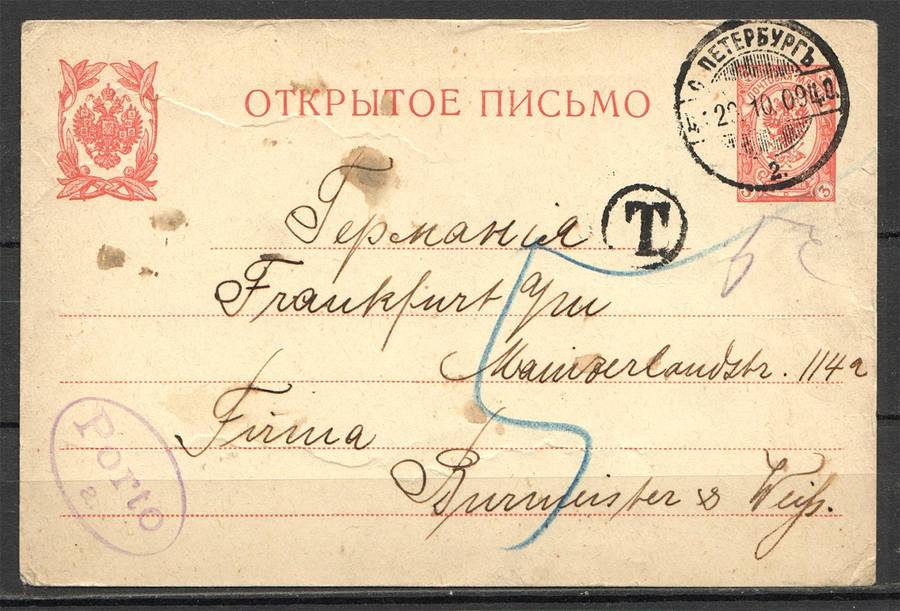 ОТКРЫТОЕ ПИСЬМО
С. ПЕТЕРБУРГЪ
22.10.09
2.
3 3
Т
Германія
Frankfurt a/m
Mainzerlandstr. 114a
Firma
Burmeister & Weiß.
5
Porto